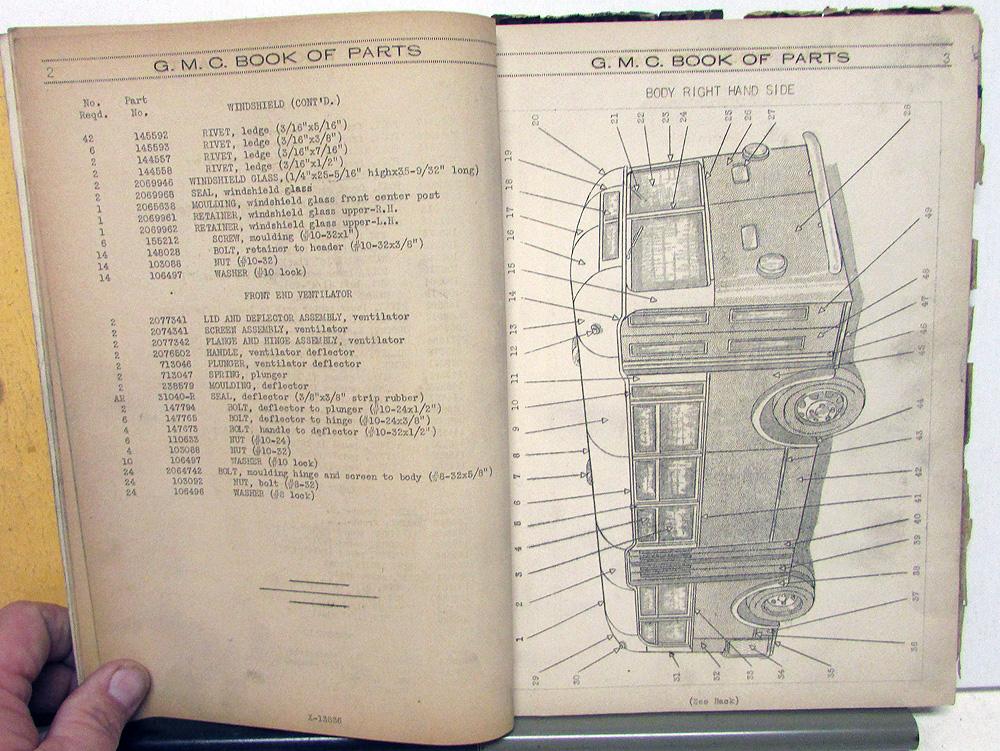 2
G. M. C. BOOK OF PARTS
No. Part
Reqd. No. WINDSHIELD (CONT'D.)
42 145592 RIVET, ledge (3/16"x5/16")
6 145593 RIVET, ledge (3/16"x3/8")
2 144557 RIVET, ledge (3/16"x7/16")
2 144558 RIVET, ledge (3/16"x1/2")
2 2069946 WINDSHIELD GLASS,(1/4"x25-5/16" highx35-9/32" long)
2 2069968 SEAL, windshield glass
1 2065638 MOULDING, windshield glass front center post
1 2069961 RETAINER, windshield glass upper-R.H.
1 2069962 RETAINER, windshield glass upper-L.H.
6 155212 SCREW, moulding (#10-32x1")
14 148028 BOLT, retainer to header (#10-32x3/8")
14 103088 NUT (#10-32)
14 106497 WASHER (#10 lock)
FRONT END VENTILATOR
2 2077341 LID AND DEFLECTOR ASSEMBLY, ventilator
2 2074341 SCREEN ASSEMBLY, ventilator
2 2077342 FLANGE AND HINGE ASSEMBLY, ventilator
2 2076502 HANDLE, ventilator deflector
2 713046 PLUNGER, ventilator deflector
2 713047 SPRING, plunger
2 238579 MOULDING, deflector
AR 31040-R SEAL, deflector (3/8"x3/8" strip rubber)
2 147794 BOLT, deflector to plunger (#10-24x1/2")
6 147765 BOLT, deflector to hinge (#10-24x3/8")
4 147673 BOLT, handle to deflector (#10-32x1/2")
6 110633 NUT (#10-24)
4 103088 NUT (#10-32)
10 106497 WASHER (#10 lock)
24 2064742 BOLT, moulding hinge and screen to body (#8-32x5/8")
24 103092 NUT, bolt (#8-32)
24 106496 WASHER (#8 lock)
X-13836
G. M. C. BOOK OF PARTS
3
BODY RIGHT HAND SIDE
20 21 22 23 24 25 26 27 28
19
18
17
16
15
14
13
12
11
10
9
8
7
6
5
4
3
2
1
49
48
47
46
45
44
43
42
41
40
39
38
37
36
29 30 31 32 33 34 35
(See Back)